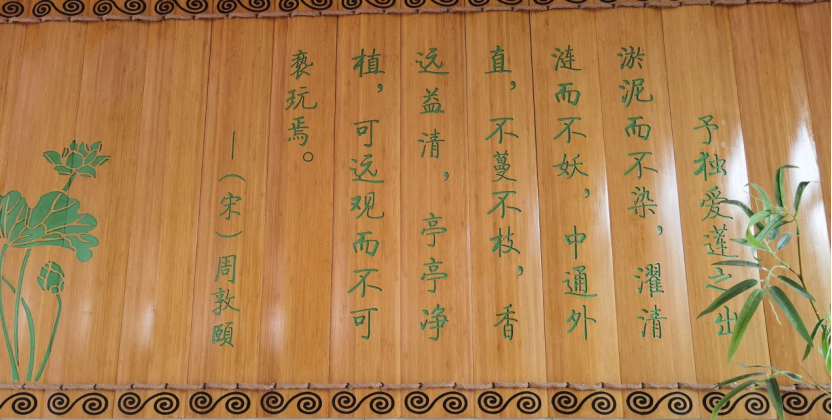 予独爱莲之出
淤泥而不染，濯清
涟而不妖，中通外
直，不蔓不枝，香
远益清，亭亭净
植，可远观而不可
亵玩焉。
—（宋）周敦颐